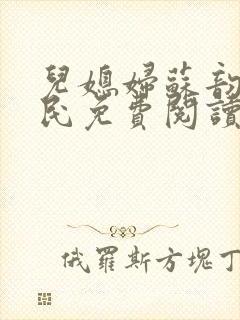 兒媳婦蘇韵
民免費閱讀
俄羅斯方塊丁